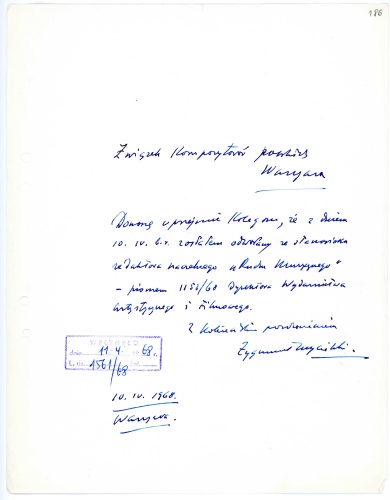 186
Związek Kompozytorów polskich
Warszawa
Donoszę uprzejmie Kolegom, że z dniem
10. IV. b.r. zostałem odwołany ze stanowiska
redaktora naczelnego „Ruchu Muzycznego"
- pismem 1152/68 Dyrektora Wydawnictwa
Artystycznego i Filmowego.
Z koleżeńskim pozdrowieniem
Zygmunt Mycielski.
WPŁYNĘŁO
dnia 11.4. 1968 r.
L. dz. 1561/68
10. IV. 1968.
Warszawa.